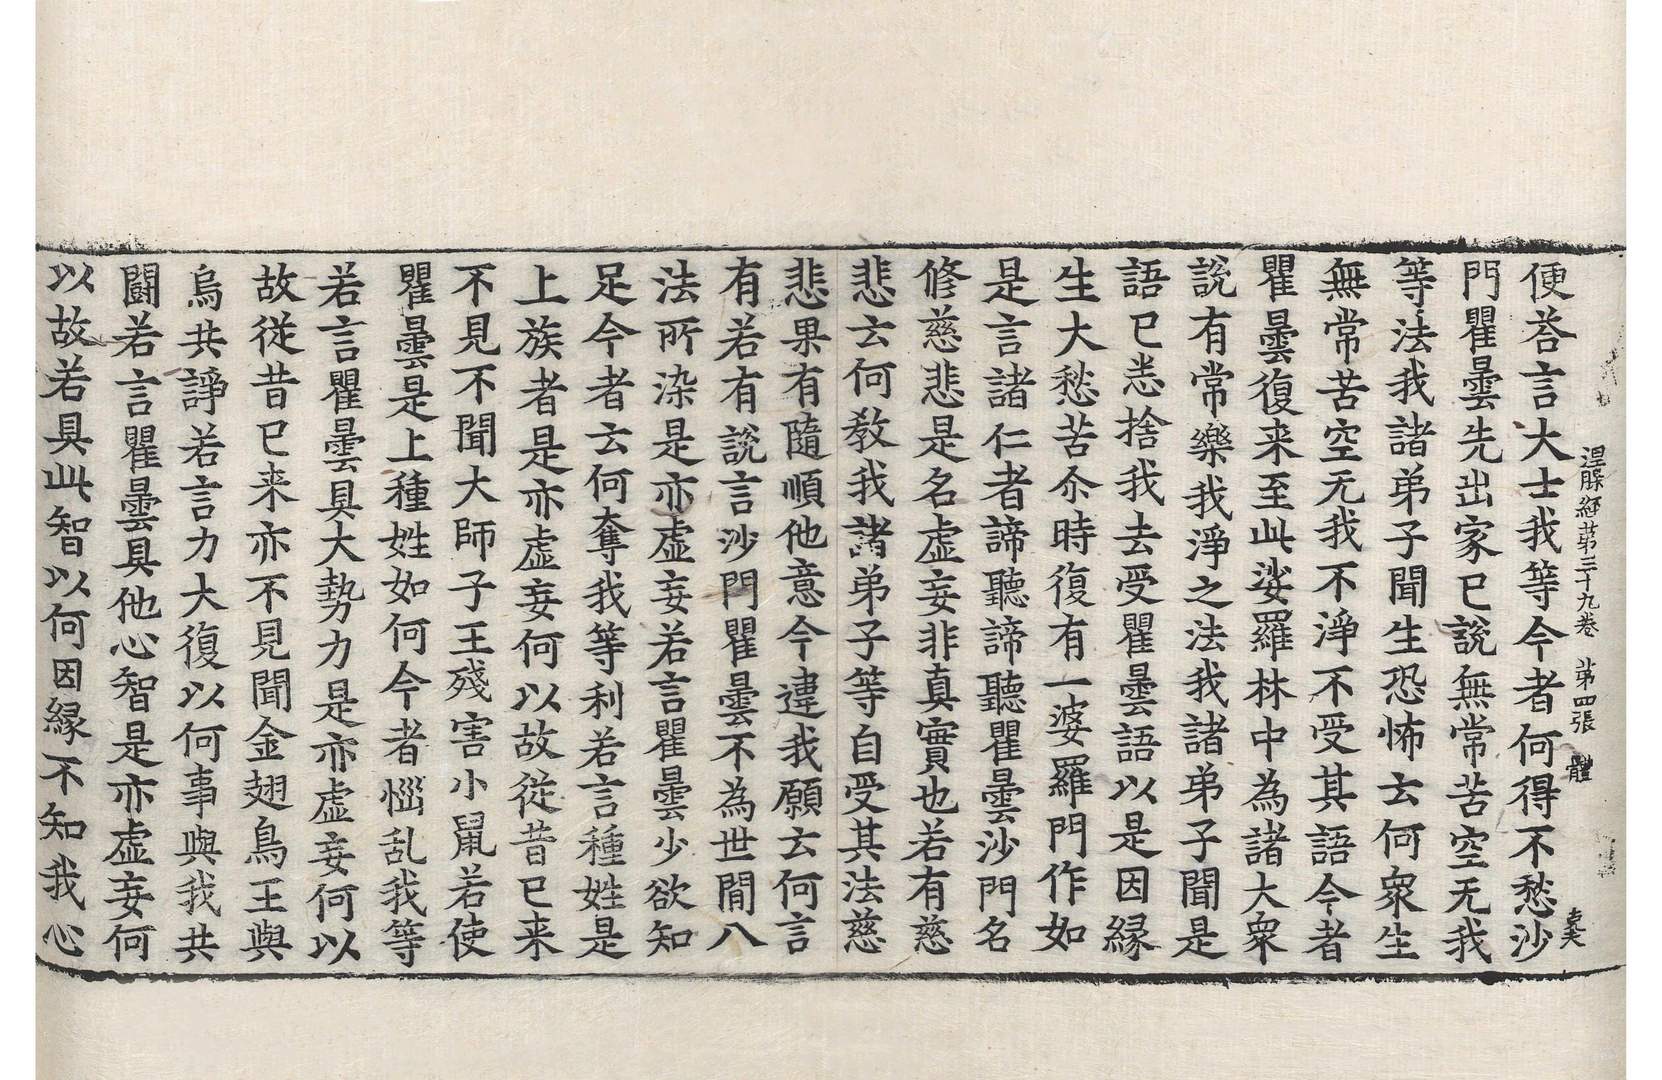 涅槃經第三十九卷　第四張　體
便荅言大士我等今者何得不愁沙
門瞿曇先出家已說無常苦空无我
等法我諸弟子聞生恐怖云何衆生
無常苦空无我不淨不受其語今者
瞿曇復来至此娑羅林中為諸大衆
說有常樂我淨之法我諸弟子聞是
語已悉捨我去受瞿曇語以是因縁
生大愁苦尒時復有一婆羅門作如
是言諸仁者諦聽諦聽瞿曇沙門名
修慈悲是名虚妄非真實也若有慈
悲云何教我諸弟子等自受其法慈
悲果有隨順他意今違我願云何言
有若有說言沙門瞿曇不為世間八
法所染是亦虚妄若言瞿曇少欲知
足今者云何奪我等利若言種姓是
上族者是亦虚妄何以故從昔已来
不見不聞大師子王殘害小鼠若使
瞿曇是上種姓如何今者惱乱我等
若言瞿曇具大勢力是亦虚妄何以
故從昔已来亦不見聞金翅鳥王與
烏共諍若言力大復以何事與我共
鬪若言瞿曇具他心智是亦虚妄何
以故若具此智以何因縁不知我心